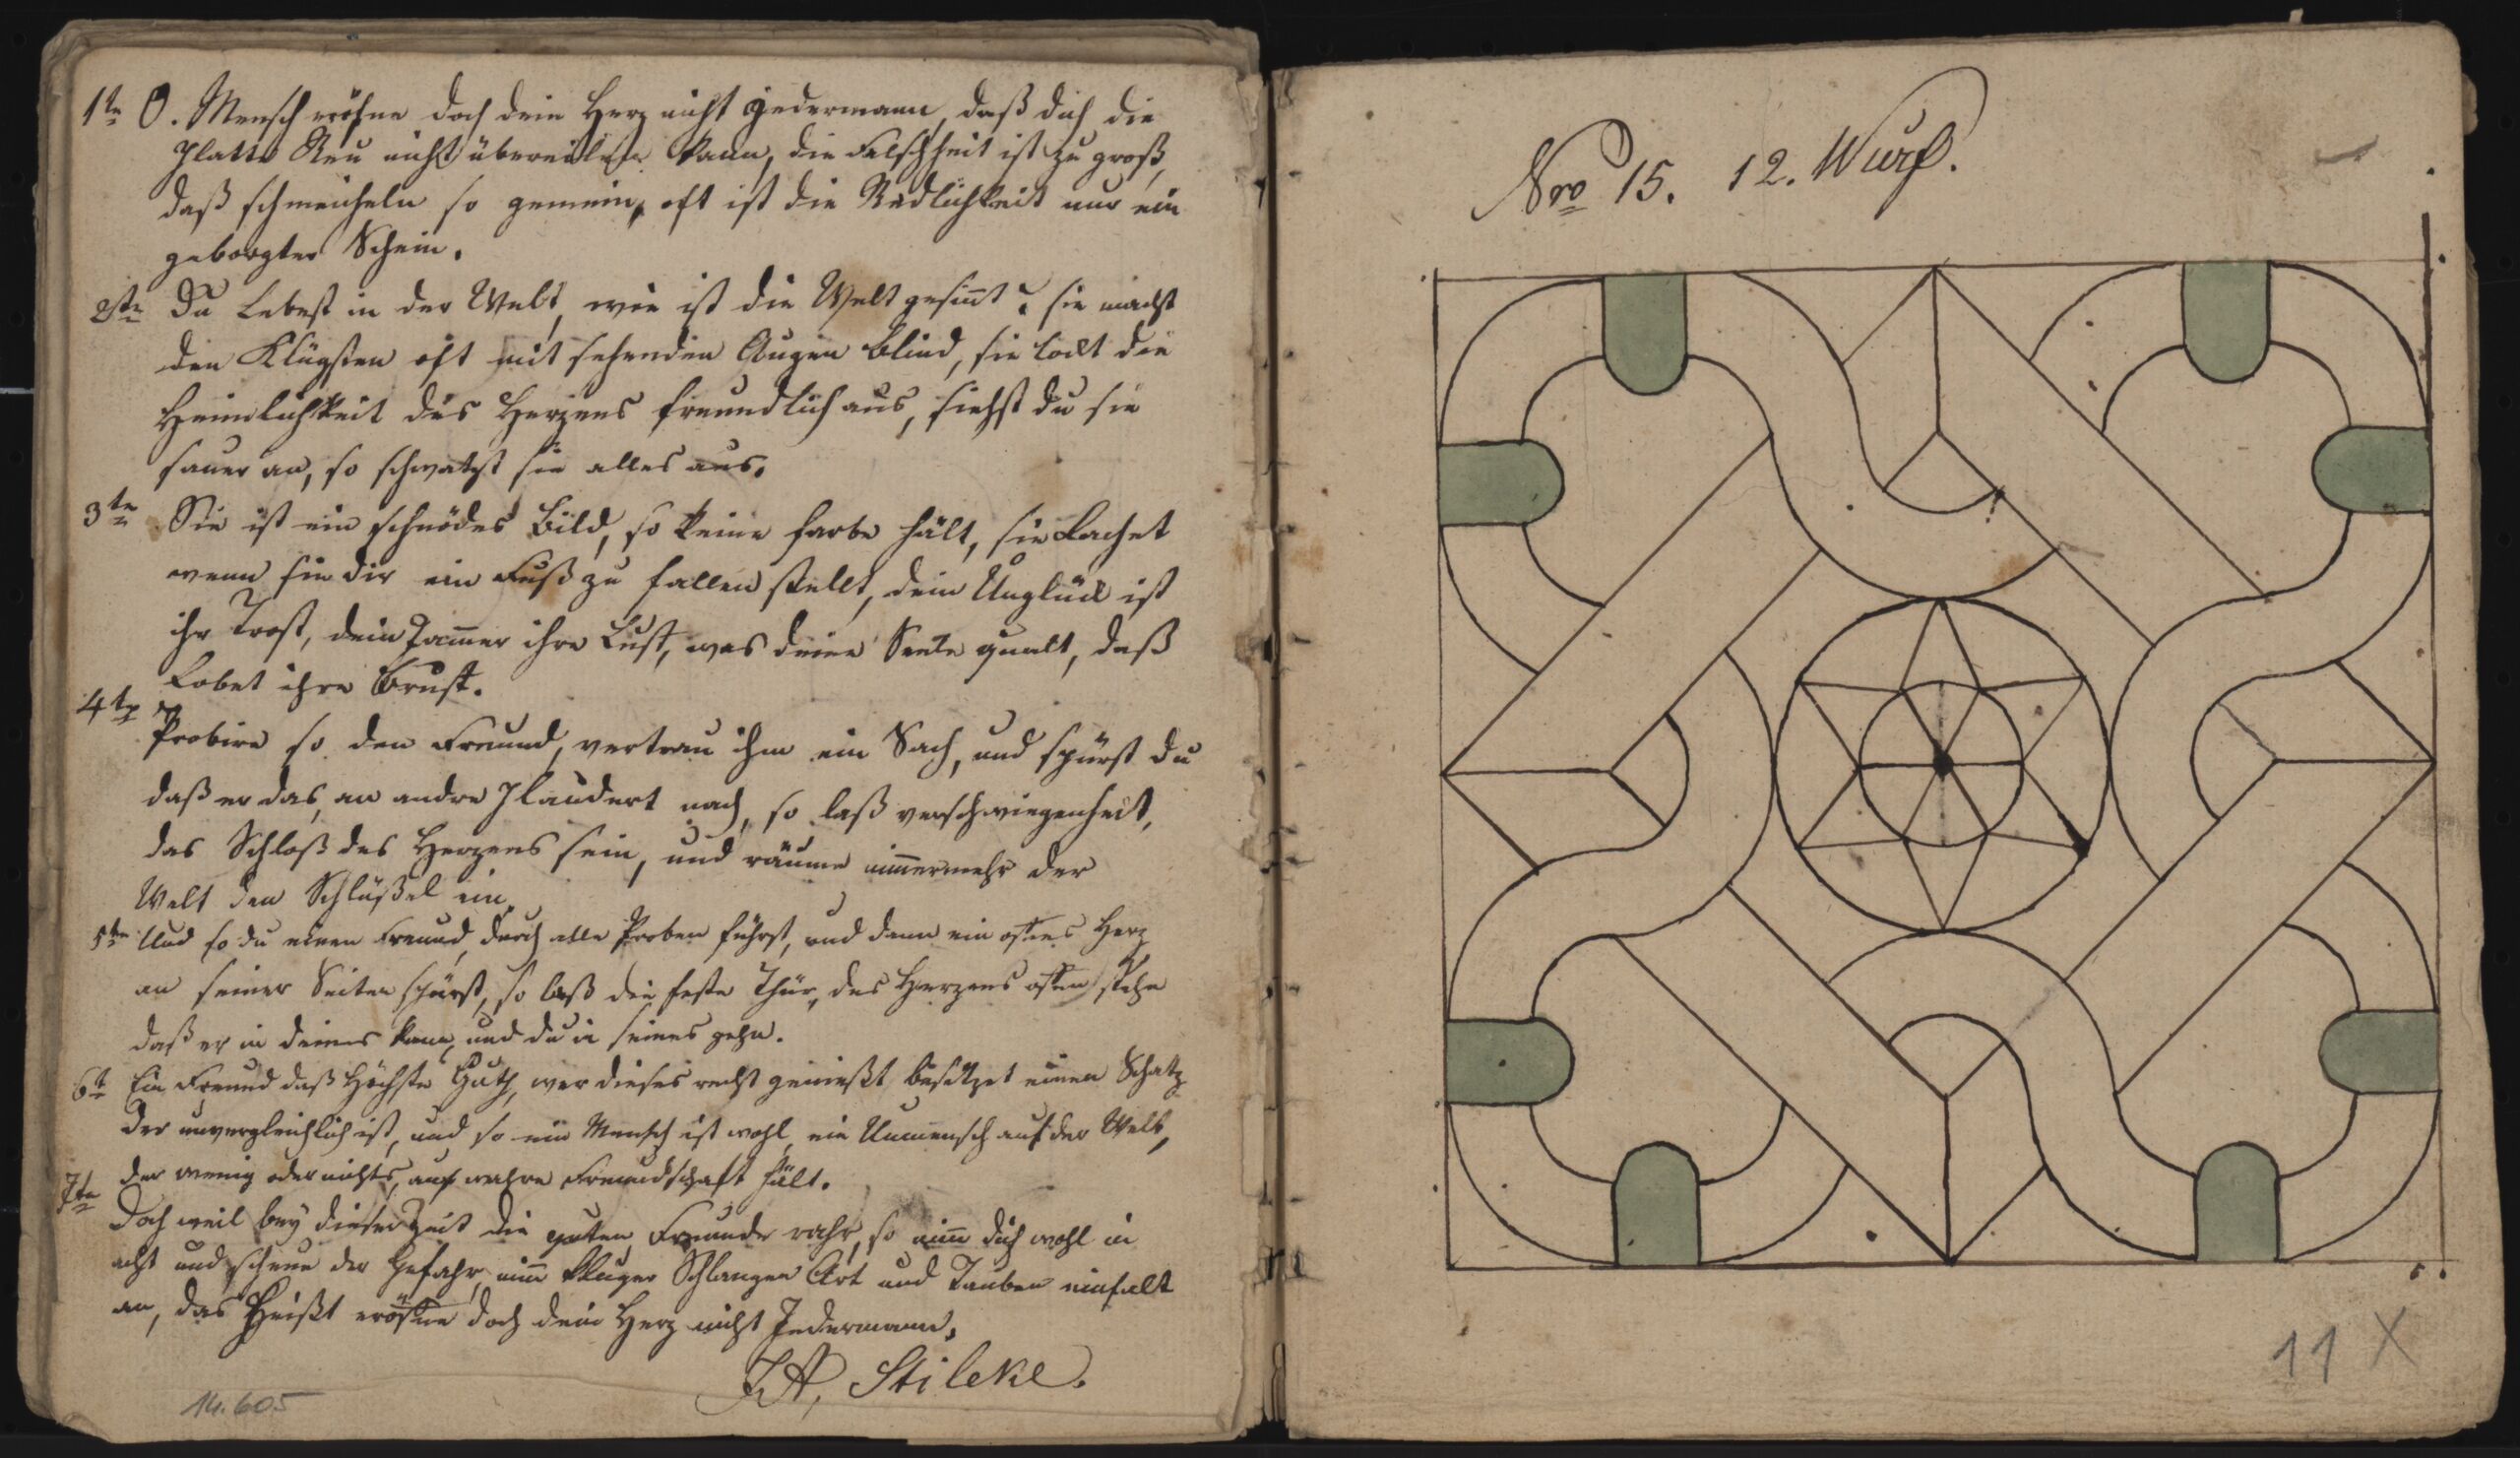 1te O. Mensch eröfne doch dein Herz nicht jedermann, daß dich die
Platte Reu nicht übereilen kann, die Falschheit ist zu groß,
daß schmeicheln so gemein, oft ist die Redlichkeit nur ein
geborgter Schein.
2te Du Lebest in der Welt, wie ist die Welt gesinnt? sie macht
den Klügsten oft mit sehenden Augen blind, sie lockt die
Heimlichkeit des Herzens freundlich aus, siehst du sie
sauer an, so schwatzt sie alles aus.
3te Sie ist ein schnödes Bild, so keine farbe hält, sie Lachet
wenn sie dir ein Fuß zu fallen stellt, dein Unglück ist
ihr Trost, dein Jammer ihre Lust, was deine Seele quält, daß
Labet ihre Brust.
4te Probire so den Freund, vertrau ihm ein Sach, und spürst du
daß er das, an andre Plaudert nach, so laß verschwiegenheit,
das Schloß des Herzens sein, und räume nimmermehr der
Welt den Schlüßel ein.
5te Und so du einen Freund, durch alle Proben führst, und dann ein ofnes Herz
an seiner Seiten spürst, so laß die feste Thür, des Herzens offen stehn
daß er in deines kann, und du in seines gehn.
6t Ein Freund daß Höchste Guth, wer dieses recht genießt besitzet einen Schatz
der unvergleichlich ist, und so ein Mensch ist wohl, ein Unmensch auf der Welt,
der wenig oder nichts, auf wahre Freundschaft hält.
7te Doch weil bey dieser Zeit die guten Freunde rahr, so nimm dich wohl in
acht und scheue der Gefahr, nimm kluger Schlangen Art und Tauben einfalt
an, das Heißt eröffne doch dein Herz nicht Jedermann.
JA, Stileke.
14.605
Nro 15. 12. Wurf.
11 X